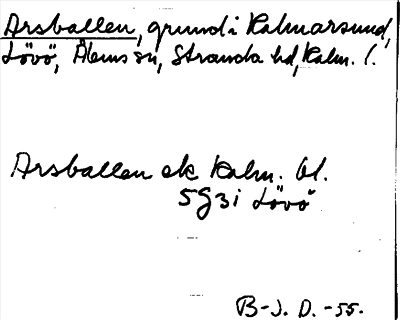 Arsballen, grund i Kalmarsund,
Lövö, Ålems sn, Stranda hd, Kalm. l.
Arsballen ek Kalm. bl.
5G3i Lövö
B-J. D. -55.